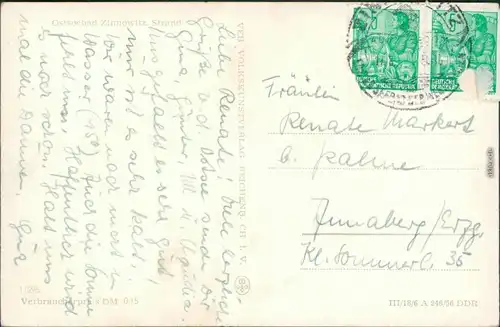 Ostseebad Zinnowitz, Strand
Liebe Renate! Viele herzliche
Grüße v. d. Ostsee senden Dir
Gina, Günter, Ulli u. Claudia.
Uns gefällt es sehr gut
nur ist es sehr kalt!
Wir waren noch nicht im
Wasser (13°) für die Sonne
fehlt uns. Hoffentlich wird
es noch schön. Halt uns
mal die Daumen. Gina
Verbraucherpreis DM 0,15
VEB VOLKSKUNSTVERLAG REICHENBACH I. V.
DEUTSCHE DEMOKRATISCHE REPUBLIK
5
5
Fräulein
Renate Markert
b. Kalme
Annaberg/Erzg.
Kl. Sommerl. 35
III/18/6 A 246/56 DDR